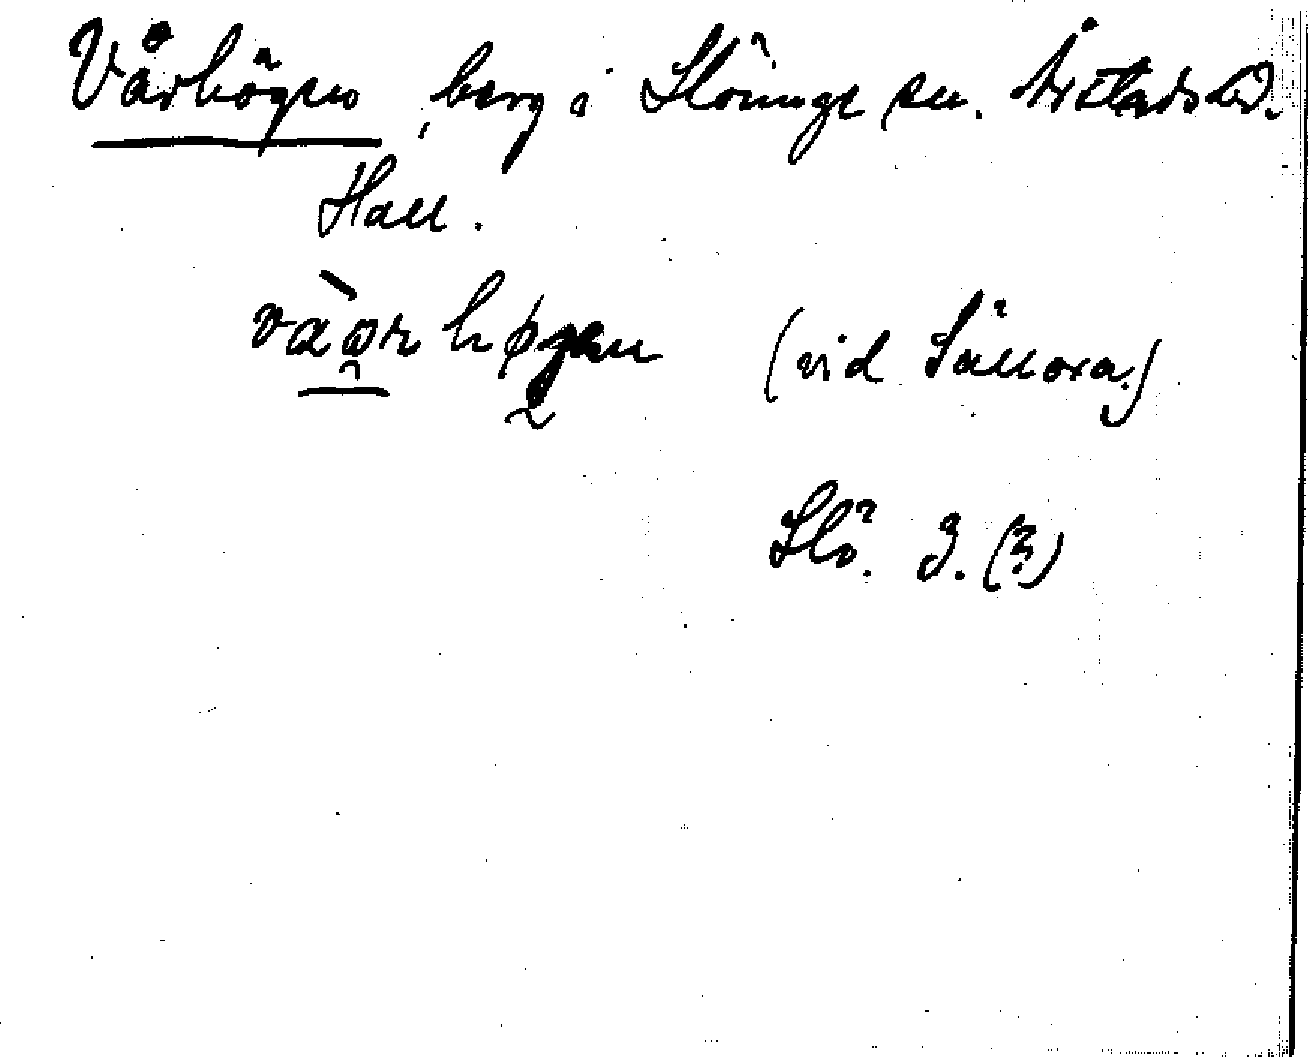 Vårhögen, berg i Slöinge sn. Årstads hd.
Hall.
vàǫr høgen (vid Sällora.)
Slö. 3. (3)